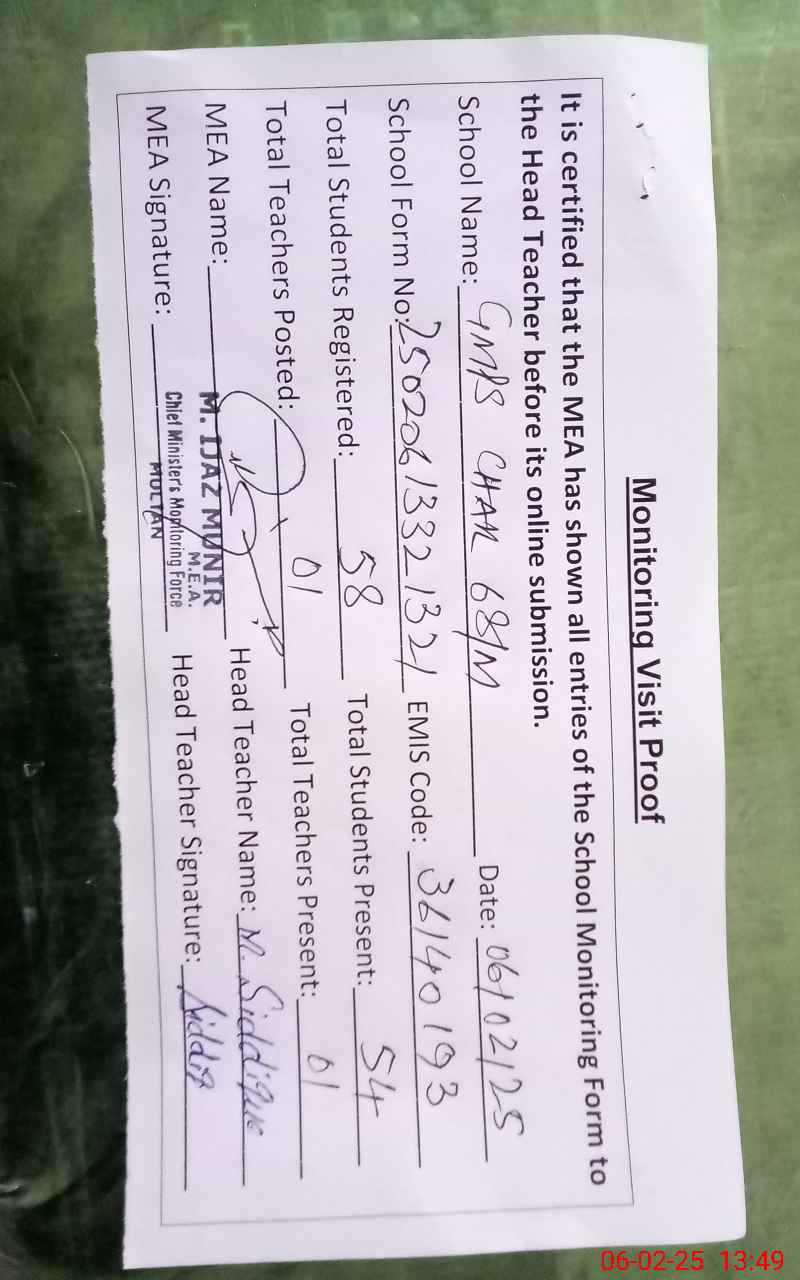 Monitoring Visit Proof
It is certified that the MEA has shown all entries of the School Monitoring Form to
the Head Teacher before its online submission.
School Name: GMPS CHAK 68/M Date: 06/02/25
School Form No: 25020613321321 EMIS Code: 36140193
Total Students Registered: 58 Total Students Present: 54
Total Teachers Posted: 01 Total Teachers Present: 01
MEA Name: M. IJAZ MUNIR Head Teacher Name: M. Siddique
M.E.A.
Chief Minister's Monitoring Force
MULTAN
MEA Signature: Head Teacher Signature: Siddiq
06-02-25 13:49